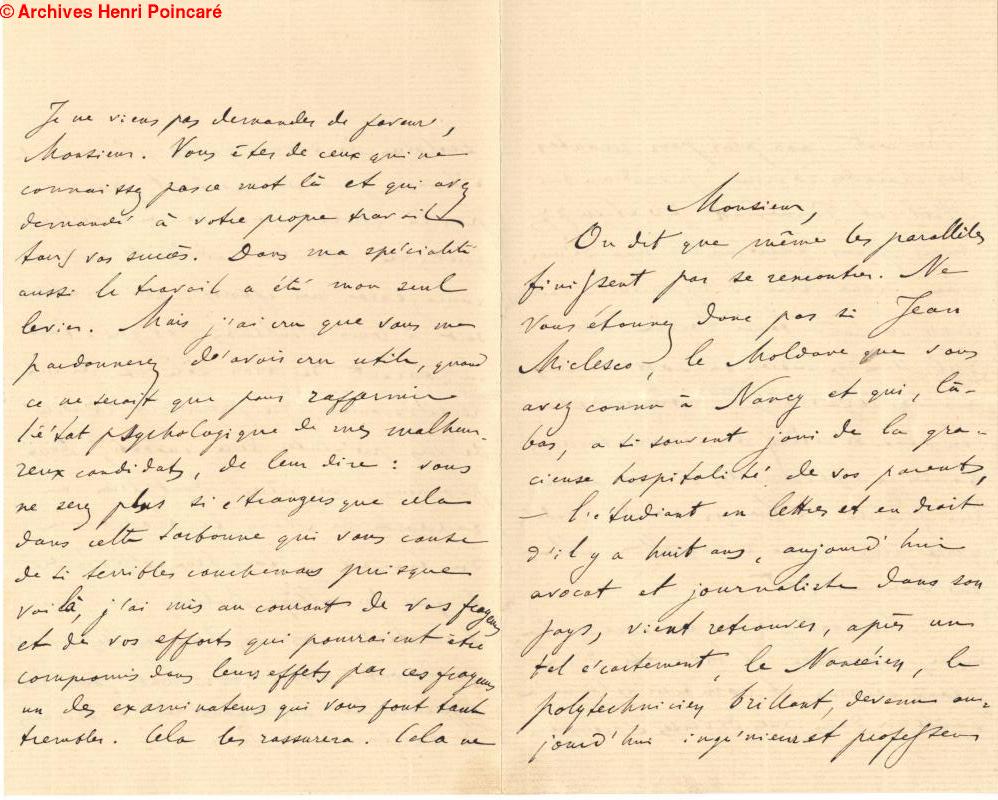 © Archives Henri Poincaré
Je ne viens pas demander de faveur,
Monsieur. Vous êtes de ceux qui ne
connaissez pas ce mot là et qui avez
demandé à votre propre travail
tous vos succès. Dans ma spécialité
aussi le travail a été mon seul
levier. Mais j'ai cru que vous me
pardonnerez d'avoir cru utile, quand
ce ne serait que pour raffermir
l'état psychologique de mes malheu-
reux candidats, de leur dire : vous
ne serez plus si étrangers que cela
dans cette Sorbonne qui vous cause
de si terribles cauchemars puisque
voilà, j'ai mis au courant de vos frayeurs
et de vos efforts qui pourraient être
compromis dans leurs effets par ces frayeurs
un des examinateurs qui vous font tant
trembler. Cela les rassurera. Cela ne
Monsieur,
On dit que même les parallèles
finissent par se rencontrer. Ne
vous étonnez donc pas si Jean
Miclesco, le Moldave que vous
avez connu à Nancy et qui, là-
bas, a si souvent joui de la gra-
cieuse hospitalité de vos parents,
— l'étudiant en lettres et en droit
d'il y a huit ans, aujourd'hui
avocat et journaliste dans son
pays, vient retrouver, après un
tel écartement, le Nancéien, le
polytechnicien brillant, devenu au-
jourd'hui ingénieur et professeur